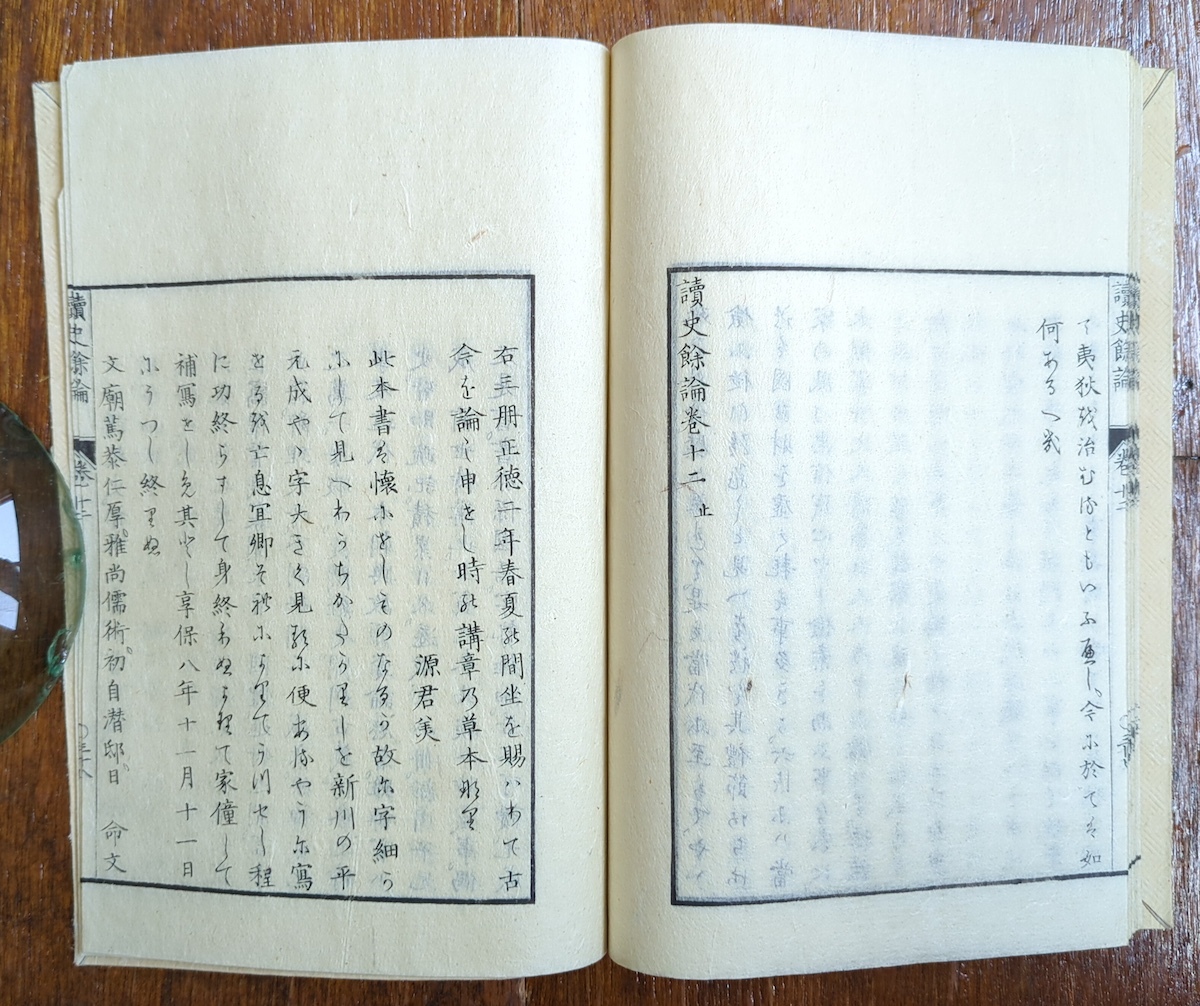 讀史餘論 卷十二
て夷狄を治むるともいふべし、今に於ては如
何あるへ哉
讀史餘論卷十二 止
右三册正德二年春夏の間坐を賜ハりて古
今を論し申せし時の講章の草本なり
源君美
此本書は懷にせしものなるか故に字細ら
にして見へわかちかたかりしを新川の平
元成やゝ字大きく見るに便あるやうに寫
せるを亡息宜卿それによりてうつせし程
に功終らすして身終りぬよりて家僮して
補寫せしめ其とし享保八年十一月十一日
にうつし終りぬ
文廟篤恭仁厚。雅尚儒術。初自潛邸日。 命文
讀史餘論 卷十二 〇三十八